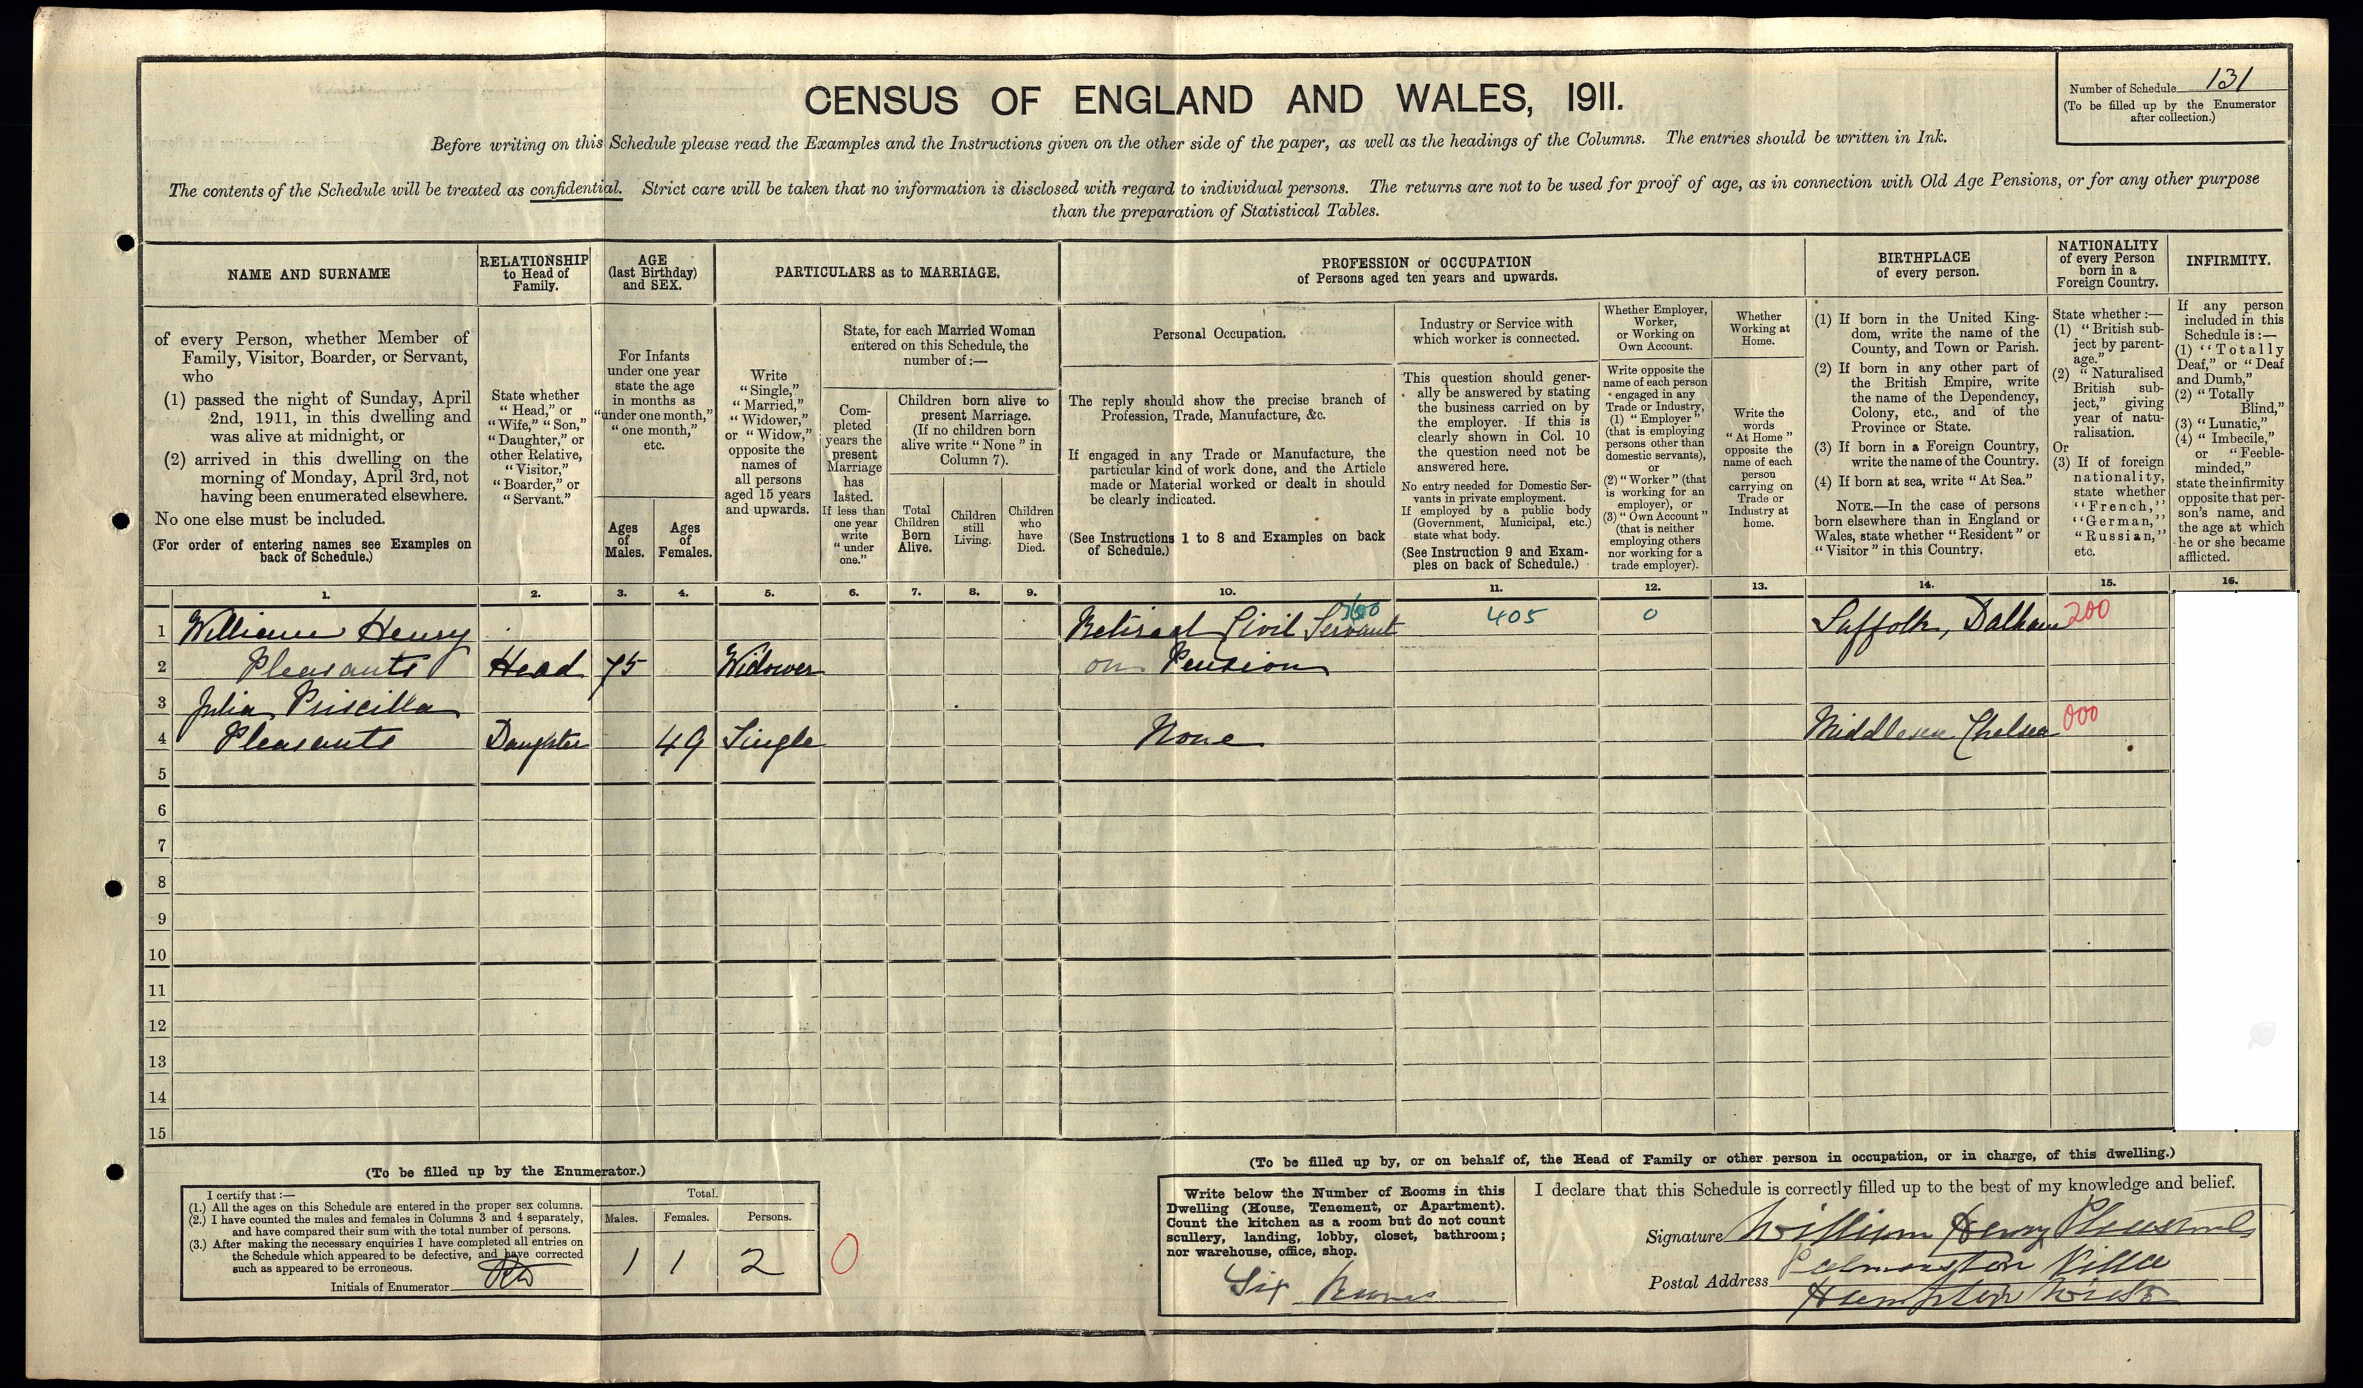 CENSUS OF ENGLAND AND WALES, 1911.
Number of Schedule 131
(To be filled up by the Enumerator
after collection.)
Before writing on this Schedule please read the Examples and the Instructions given on the other side of the paper, as well as the headings of the Columns. The entries should be written in Ink.
The contents of the Schedule will be treated as confidential. Strict care will be taken that no information is disclosed with regard to individual persons. The returns are not to be used for proof of age, as in connection with Old Age Pensions, or for any other purpose
than the preparation of Statistical Tables.
NAME AND SURNAME
of every Person, whether Member of
Family, Visitor, Boarder, or Servant,
who
(1) passed the night of Sunday, April
2nd, 1911, in this dwelling and
was alive at midnight, or
(2) arrived in this dwelling on the
morning of Monday, April 3rd, not
having been enumerated elsewhere.
No one else must be included.
(For order of entering names see Examples on
back of Schedule.)
RELATIONSHIP
to Head of
Family.
State whether
"Head," or
"Wife," "Son,"
"Daughter," or
other Relative,
"Visitor,"
"Boarder," or
"Servant."
AGE
(last Birthday)
and SEX.
For Infants
under one year
state the age
in months as
"under one month,"
"one month,"
etc.
Ages
of
Males.
Ages
of
Females.
PARTICULARS as to MARRIAGE.
Write
"Single,"
"Married,"
"Widower,"
or "Widow,"
opposite the
names of
all persons
aged 15 years
and upwards.
State, for each Married Woman
entered on this Schedule, the
number of:—
Com-
pleted
years the
present
Marriage
has
lasted.
If less than
one year
write
"under
one."
Children born alive to
present Marriage.
(If no children born
alive write "None" in
Column 7).
Total
Children
Born
Alive.
Children
still
Living.
Children
who
have
Died.
PROFESSION or OCCUPATION
of Persons aged ten years and upwards.
Personal Occupation.
The reply should show the precise branch of
Profession, Trade, Manufacture, &c.
If engaged in any Trade or Manufacture, the
particular kind of work done, and the Article
made or Material worked or dealt in should
be clearly indicated.
(See Instructions 1 to 8 and Examples on back
of Schedule.)
Industry or Service with
which worker is connected.
This question should gener-
ally be answered by stating
the business carried on by
the employer. If this is
clearly shown in Col. 10
the question need not be
answered here.
No entry needed for Domestic Ser-
vants in private employment.
If employed by a public body
(Government, Municipal, etc.)
state what body.
(See Instruction 9 and Exam-
ples on back of Schedule.)
Whether Employer,
Worker,
or Working on
Own Account.
Write opposite the
name of each person
engaged in any
Trade or Industry,
(1) "Employer"
(that is employing
persons other than
domestic servants),
or
(2) "Worker" (that
is working for an
employer), or
(3) "Own Account"
(that is neither
employing others
nor working for a
trade employer).
Whether
Working at
Home.
Write the
words
"At Home"
opposite the
name of each
person
carrying on
Trade or
Industry at
home.
BIRTHPLACE
of every person.
(1) If born in the United King-
dom, write the name of the
County, and Town or Parish.
(2) If born in any other part of
the British Empire, write
the name of the Dependency,
Colony, etc., and of the
Province or State.
(3) If born in a Foreign Country,
write the name of the Country.
(4) If born at sea, write "At Sea."
NOTE.—In the case of persons
born elsewhere than in England or
Wales, state whether "Resident" or
"Visitor" in this Country.
NATIONALITY
of every Person
born in a
Foreign Country.
State whether:—
(1) "British sub-
ject by parent-
age."
(2) "Naturalised
British sub-
ject," giving
year of natu-
ralisation.
Or
(3) If of foreign
nationality,
state whether
"French,"
"German,"
"Russian,"
etc.
INFIRMITY.
If any person
included in this
Schedule is:—
(1) "Totally
Deaf," or "Deaf
and Dumb,"
(2) "Totally
Blind,"
(3) "Lunatic,"
(4) "Imbecile,"
or "Feeble-
minded,"
state the infirmity
opposite that per-
son's name, and
the age at which
he or she became
afflicted.
1. 2. 3. 4. 5. 6. 7. 8. 9. 10. 11. 12. 13. 14. 15. 16.
1 William Henry Retired Civil Servant 405 0 Suffolk, Dalham 200
2 Pleasants Head 75 Widower on Pension
3 Julia Priscilla
4 Pleasants Daughter 49 Single None Middlesex Chelsea 000
5
6
7
8
9
10
11
12
13
14
15
(To be filled up by the Enumerator.)
I certify that:—
(1.) All the ages on this Schedule are entered in the proper sex columns.
(2.) I have counted the males and females in Columns 3 and 4 separately,
and have compared their sum with the total number of persons.
(3.) After making the necessary enquiries I have completed all entries on
the Schedule which appeared to be defective, and have corrected
such as appeared to be erroneous.
Initials of Enumerator
Total.
Males. Females. Persons.
1 1 2 0
(To be filled up by, or on behalf of, the Head of Family or other person in occupation, or in charge, of this dwelling.)
Write below the Number of Rooms in this
Dwelling (House, Tenement, or Apartment).
Count the kitchen as a room but do not count
scullery, landing, lobby, closet, bathroom;
nor warehouse, office, shop.
Six Rooms
I declare that this Schedule is correctly filled up to the best of my knowledge and belief.
Signature William Henry Pleasants
Postal Address Palmerston Villa
Hampton Wick